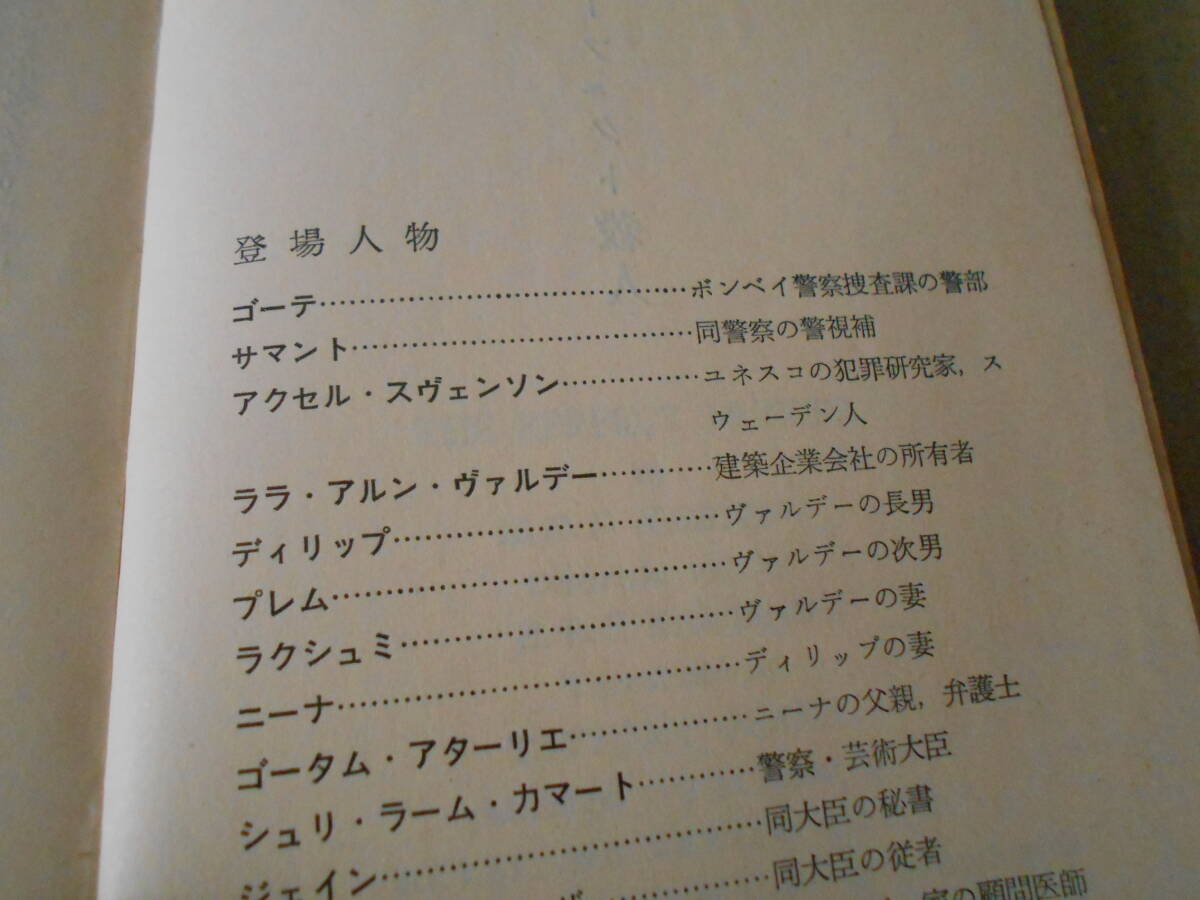 登場人物
ゴーテ……………………………………ボンベイ警察捜査課の警部
サマント…………………………………同警察の警視補
アクセル・スヴェンソン……………ユネスコの犯罪研究家，ス
ウェーデン人
ララ・アルン・ヴァルデー…………建築企業会社の所有者
ディリップ………………………………ヴァルデーの長男
プレム……………………………………ヴァルデーの次男
ラクシュミ………………………………ヴァルデーの妻
ニーナ……………………………………ディリップの妻
ゴータム・アターリエ………………ニーナの父親，弁護士
シュリ・ラーム・カマート…………警察・芸術大臣
ジェイン…………………………………同大臣の秘書
同大臣の従者
家の顧問医師